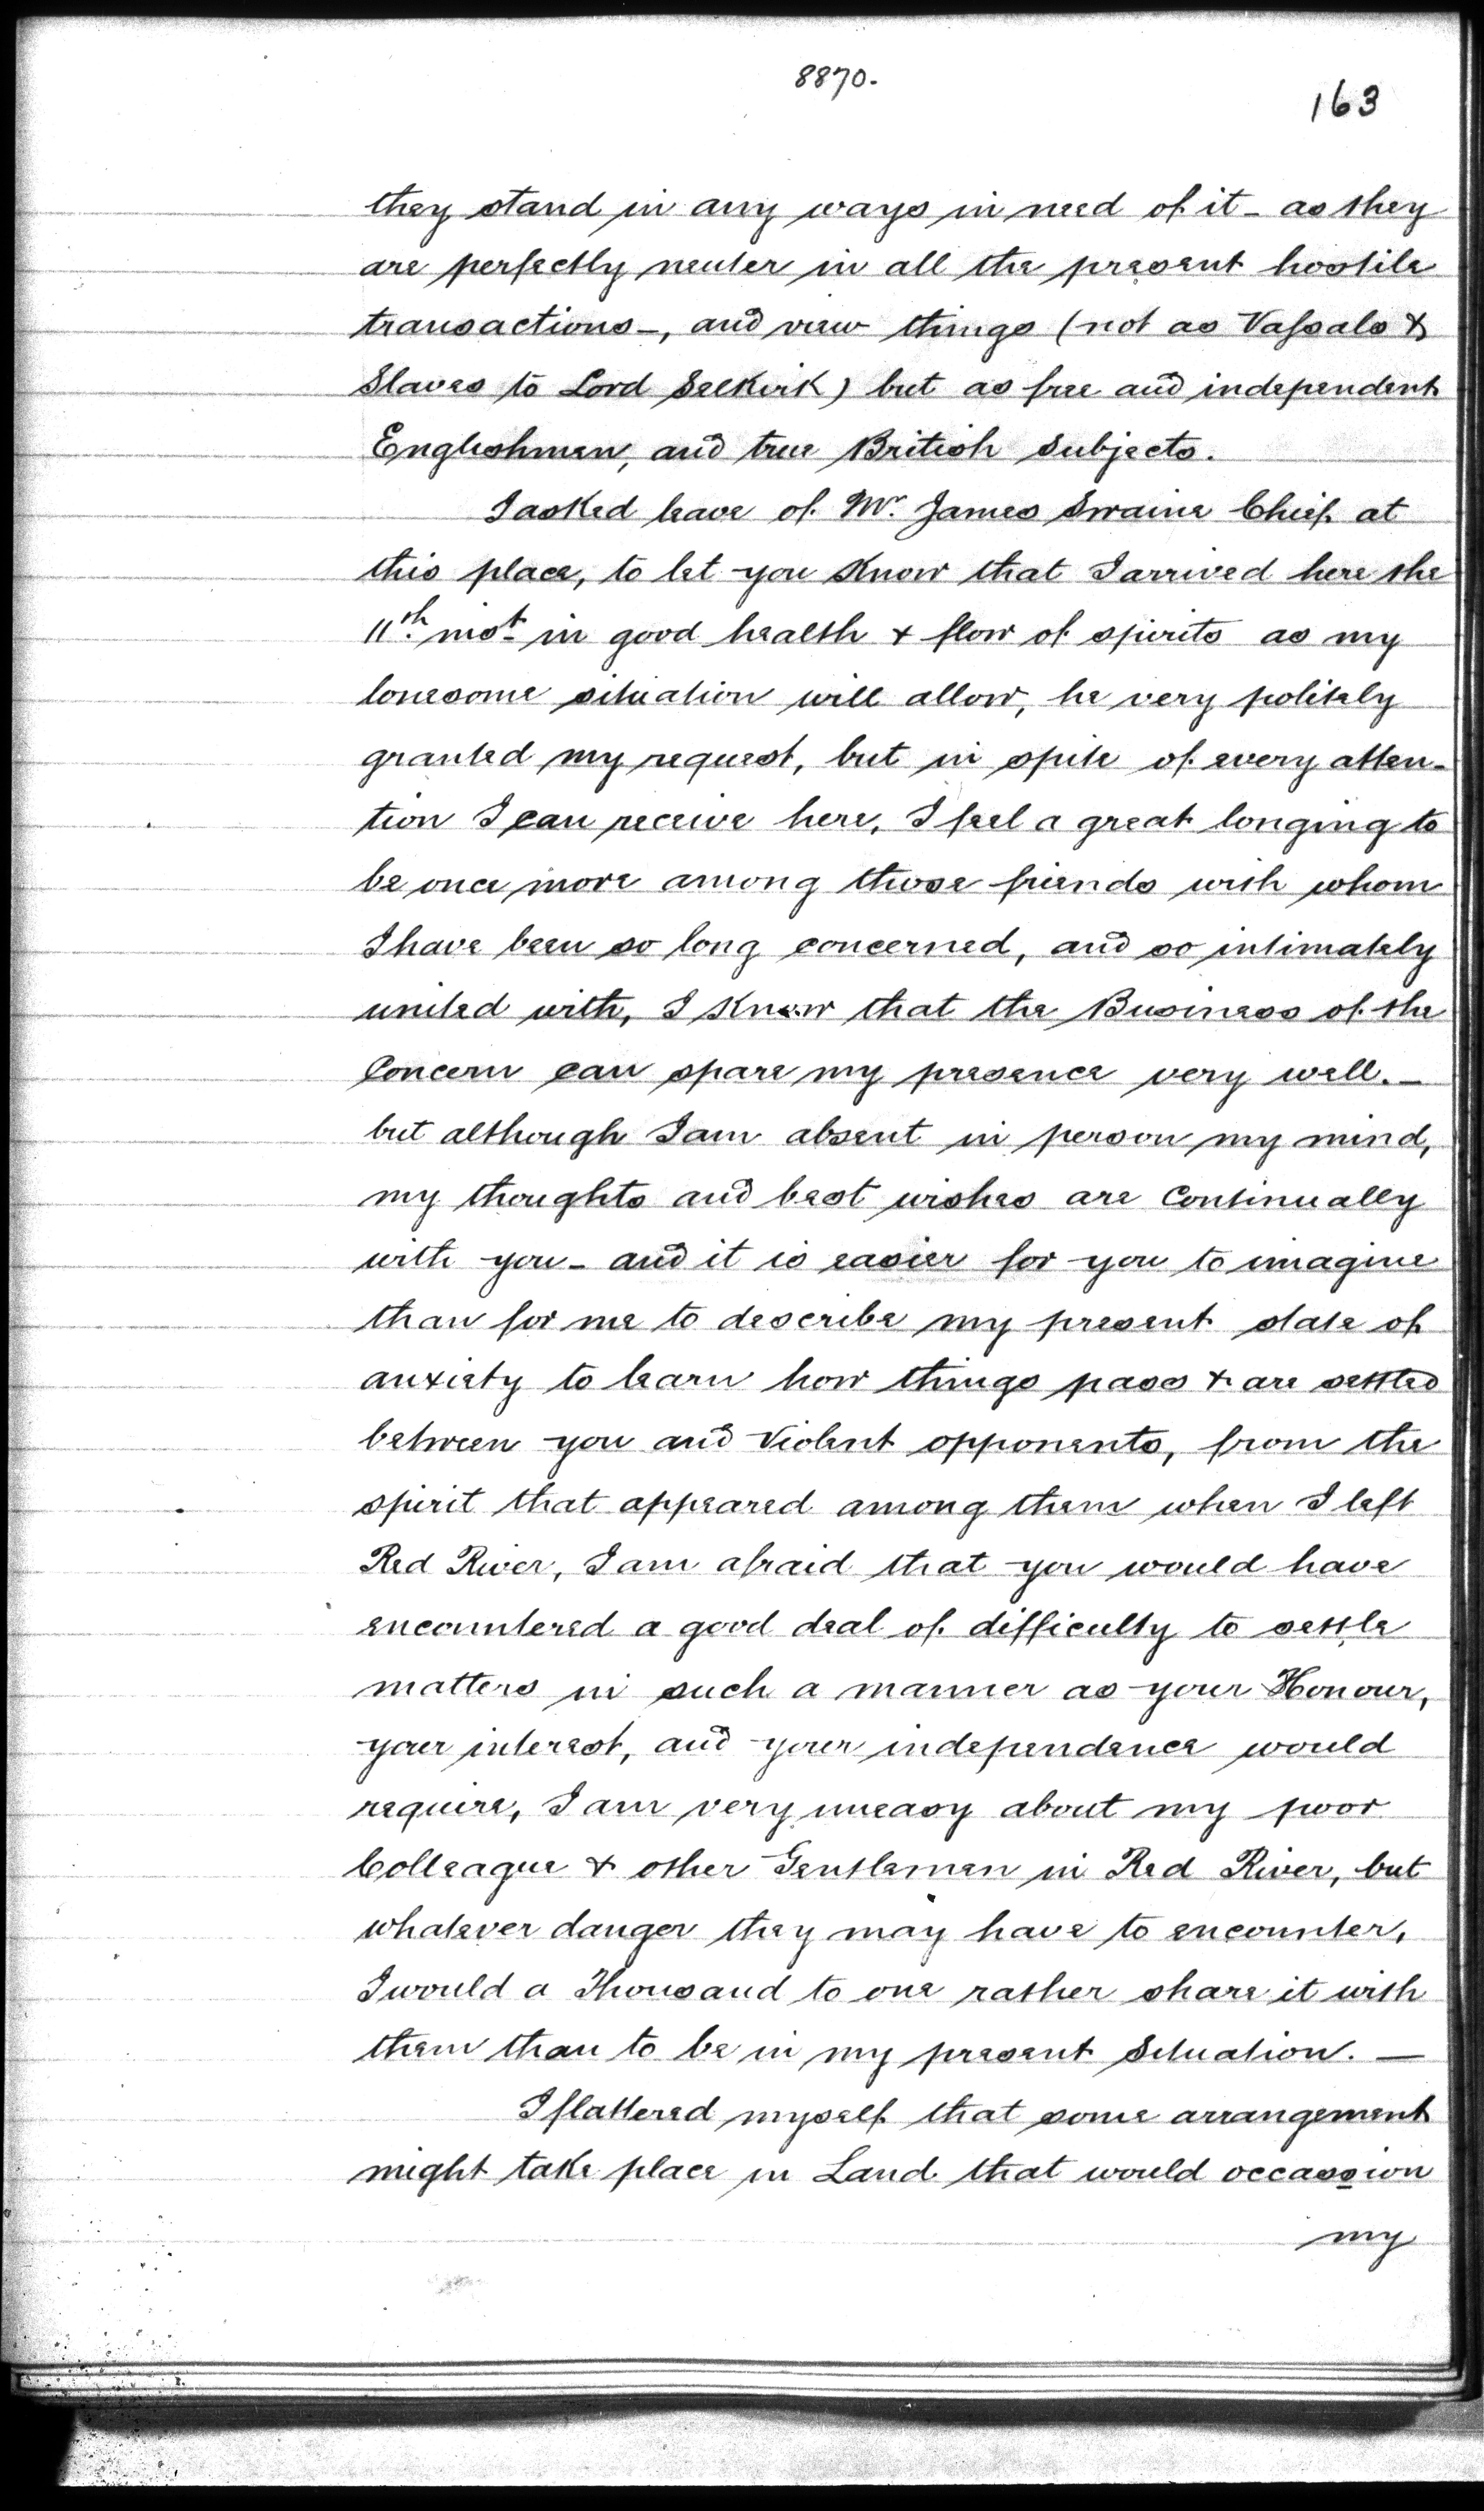 8870.
163
they stand in any ways in need of it - as they
are perfectly neuter in all the present hostile
transactions -, and view things (not as Vaſsals &
Slaves to Lord Selkirk) but as free and independent
Englishmen, and true British Subjects.
I asked leave of Mr. James Swaine Chief at
this place, to let you know that I arrived here the
11th. inst. in good health & flow of spirits as my
lonesome situation will allow, he very politely
granted my request, but in spite of every atten-
tion I can receive here, I feel a great longing to
be once more among those friends with whom
I have been so long concerned, and so intimately
united with, I know that the Business of the
Concern can spare my presence very well. -
but although I am absent in person my mind,
my thoughts and best wishes are Continually
with you - and it is easier for you to imagine
than for me to describe my present state of
anxiety to learn how things pass & are settled
between you and Violent opponents, from the
spirit that appeared among them when I left
Red River, I am afraid that you would have
encountered a good deal of difficulty to settle
matters in such a manner as your Honour,
your interest, and your independence would
require, I am very uneasy about my poor
Colleague & other Gentlemen in Red River, but
whatever danger they may have to encounter,
I would a Thousand to one rather share it with
them than to be in my present Situation. —
I flattered myself that some arrangement
might take place in Land that would occassion
my